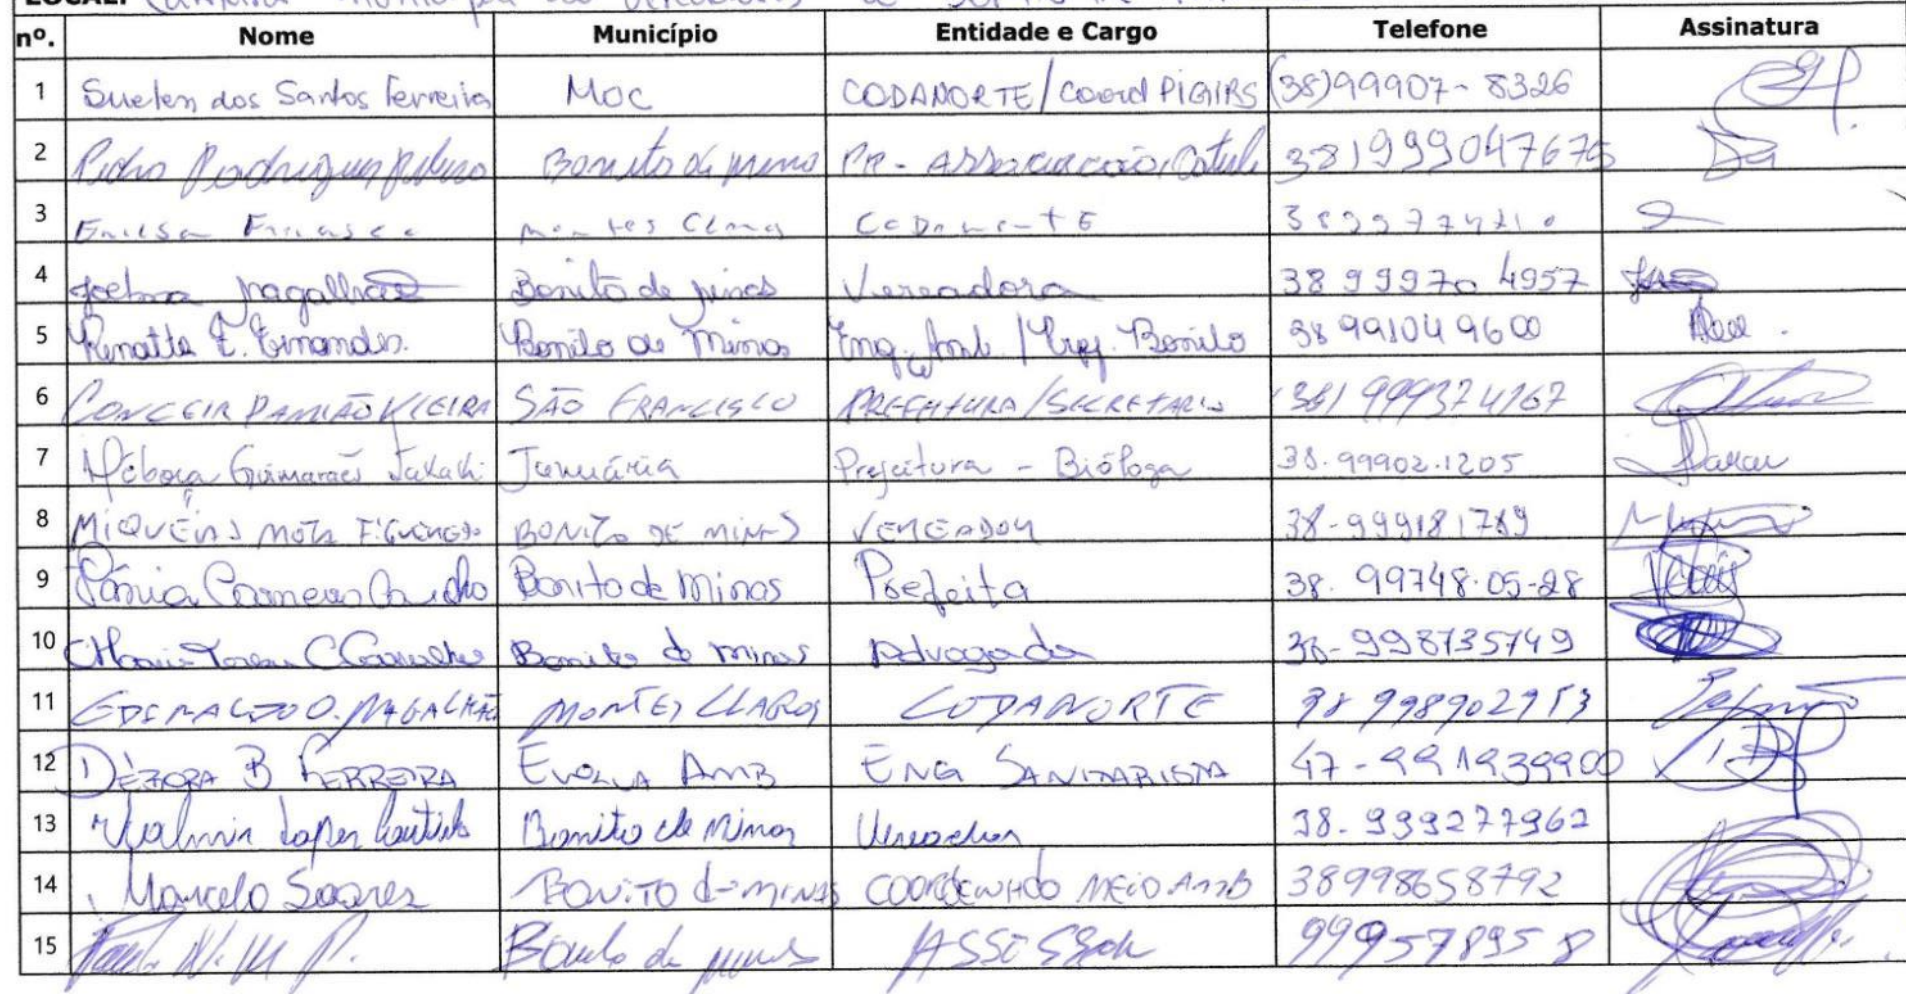 LOCAL: Câmara Municipal de Vereadores de
nº. Nome Município Entidade e Cargo Telefone Assinatura
1 Suelen dos Santos Ferreira MOC CODANORTE/Coord PIGIRS (38)99907-8326
2 Pedro Rodrigues Bonito de Minas PR - Associação 38)999047675
3 Montes Claros CODANORTE
4 Joelma Magalhães Bonito de Minas Vereadora 38 99970 4957
5 Renatta F. Fernandes. Bonito de Minas Eng. Amb. / Pref. Bonito 38 991049600
6 CONCEIR DAMIÃO VIEIRA SÃO FRANCISCO PREFEITURA/SECRETARIO (38) 999374167
7 Débora Guimarães Takaki Januária Prefeitura - Bióloga 38.99902.1205
8 MIQUÉIAS MOTA FIGUEREDO BONITO DE MINAS VEREADOR 38-999181789
9 Vânia Carneiro Bonito de Minas Prefeita 38. 99748.05-28
10 Carvalho Bonito de minas Advogada 38-998735749
11 EDEMALDO O. MAGALHÃES MONTES CLAROS CODANORTE 38 998902953
12 DÉBORA B FERREIRA EVOLUA AMB ENG SANITARISTA 47-991939900
13 Valmir Lopes Bonito de Minas Vereador 38.999277962
14 Marcelo Soares BONITO de MINAS COORDENADO MEIO AMB 38998658792
15 Bonito de minas ASSESSOR 999578958